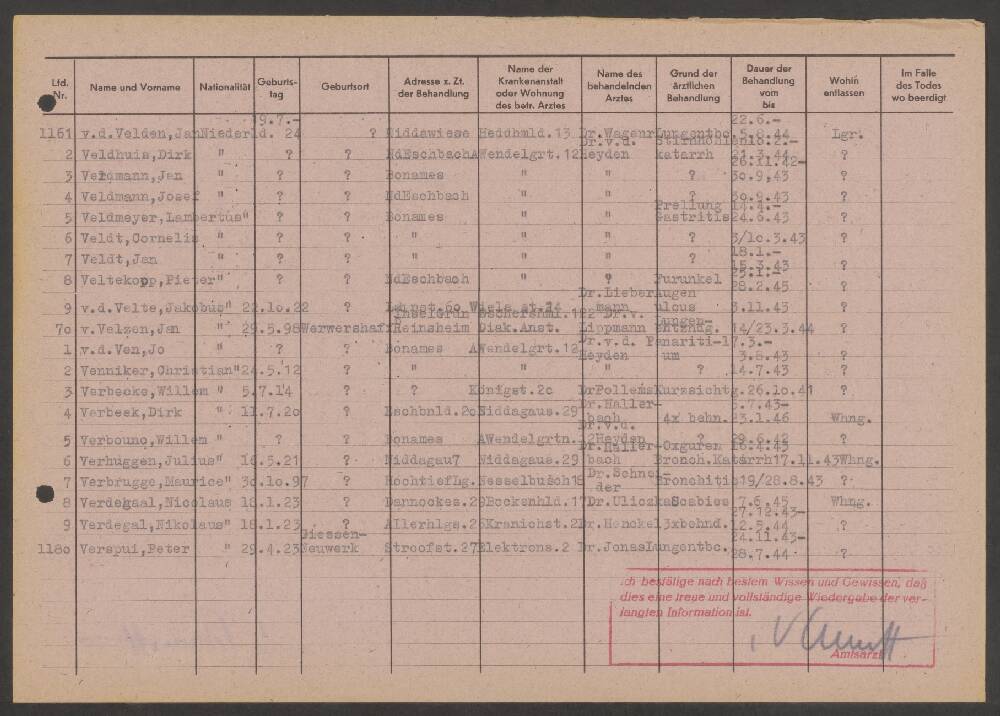 Lfd. Nr. Name und Vorname Nationalität Geburts- tag Geburtsort Adresse z. Zt. der Behandlung Name der Krankenanstalt oder Wohnung des betr. Arztes Name des behandelnden Arztes Grund der ärztlichen Behandlung Dauer der Behandlung vom bis Wohin entlassen Im Falle des Todes wo beerdigt
9.7.- 22.6.-
1161 v.d.Velden,Jan Niederld. 24 ? Niddawiese Heddhmld.13 Dr.Wagenr Lungentbc. 5.8.44 Lgr.
Dr.v.d. Stirnhöhlen 16.2.-
2 Veldhuis,Dirk " ? ? NdEschbach AWendelgrt.12 Heyden katarrh 21.3.44 ?
26.11.42-
3 Veldmann,Jan " ? ? Bonames " " ? 30.9.43 ?
4 Veldmann,Josef " ? ? NdEschbach " " ? 30.9.43 ?
Prellung 14.4.-
5 Veldmeyer,Lambertus" ? ? Bonames " " Gastritis 24.6.43 ?
6 Veldt,Cornelis " ? ? " " " ? 3/10.3.43 ?
18.1.-
7 Veldt,Jan " ? ? " " " ? 15.3.43 ?
25.1.-
8 Veltekopp,Pieter" ? ? NdEschbach " ? Furunkel 28.2.45 ?
Dr.Lieber Augen
9 v.d.Velte,Jakobus" 22.10.22 ? Lahnst.60 Wiela st.24 mann ulcus 3.11.43 ?
Dr. v. Lungen-
70 v.Velzen,Jan " 29.5.98 Werwershaf Heinsheim Diak.Anst. Lippmann entzndg. 14/23.3.44 ?
Dr.v.d. Panariti- 17.3.-
1 v.d.Ven,Jo " ? ? Bonames AWendelgrt.12 Heyden um 3.8.43 ?
2 Venniker,Christian" 24.5.12 ? " " " ? 14.7.43 ?
3 Verbecke,Willem " 5.7.14 ? ? Königst.20 DrPollems Kurzsichtg. 26.10.41 ?
Dr.Haller- 5.7.43-
4 Verbeek,Dirk " 11.7.20 ? Eschbnld.20 Niddagaus.29 bach 4x behn. 23.1.46 Whng.
Dr.v.d.
5 Verbouno,Willem " ? ? Bonames AWendelgrtn.12 Heyden ? 29.6.42 ?
Dr.Haller- Oxguren 16.4.43
6 Verhuggen,Julius" 16.5.21 ? Niddagau7 Niddagaus.29 bach Bronch.Katarrh 17.11.43 Whng.
Dr.Schnei-
7 Verbrugge,Maurice" 30.10.97 ? HochtiefLg. Nesselbusch18 der Bronchitis 19/28.8.43 ?
8 Verdegaal,Nicolaus 18.1.23 ? Darnockes.29 Eckenhld.17 Dr.Uliczka Scabies 7.6.45 Whng.
27.12.43-
9 Verdegal,Nikolaus" 18.1.23 ? Allerhlgs.26 Kranichst.2 Dr.Henckel 3xbehnd. 12.5.44 ?
Giessen- 24.11.43-
1180 Verspui,Peter " 29.4.23 Neuwerk Stroofst.27 Elektrons.2 Dr.Jonas Lungentbc. 28.7.44 ?
Ich bestätige nach bestem Wissen und Gewissen, daß
dies eine treue und vollständige Wiedergabe der ver-
langten Information ist.
Amtsarzt